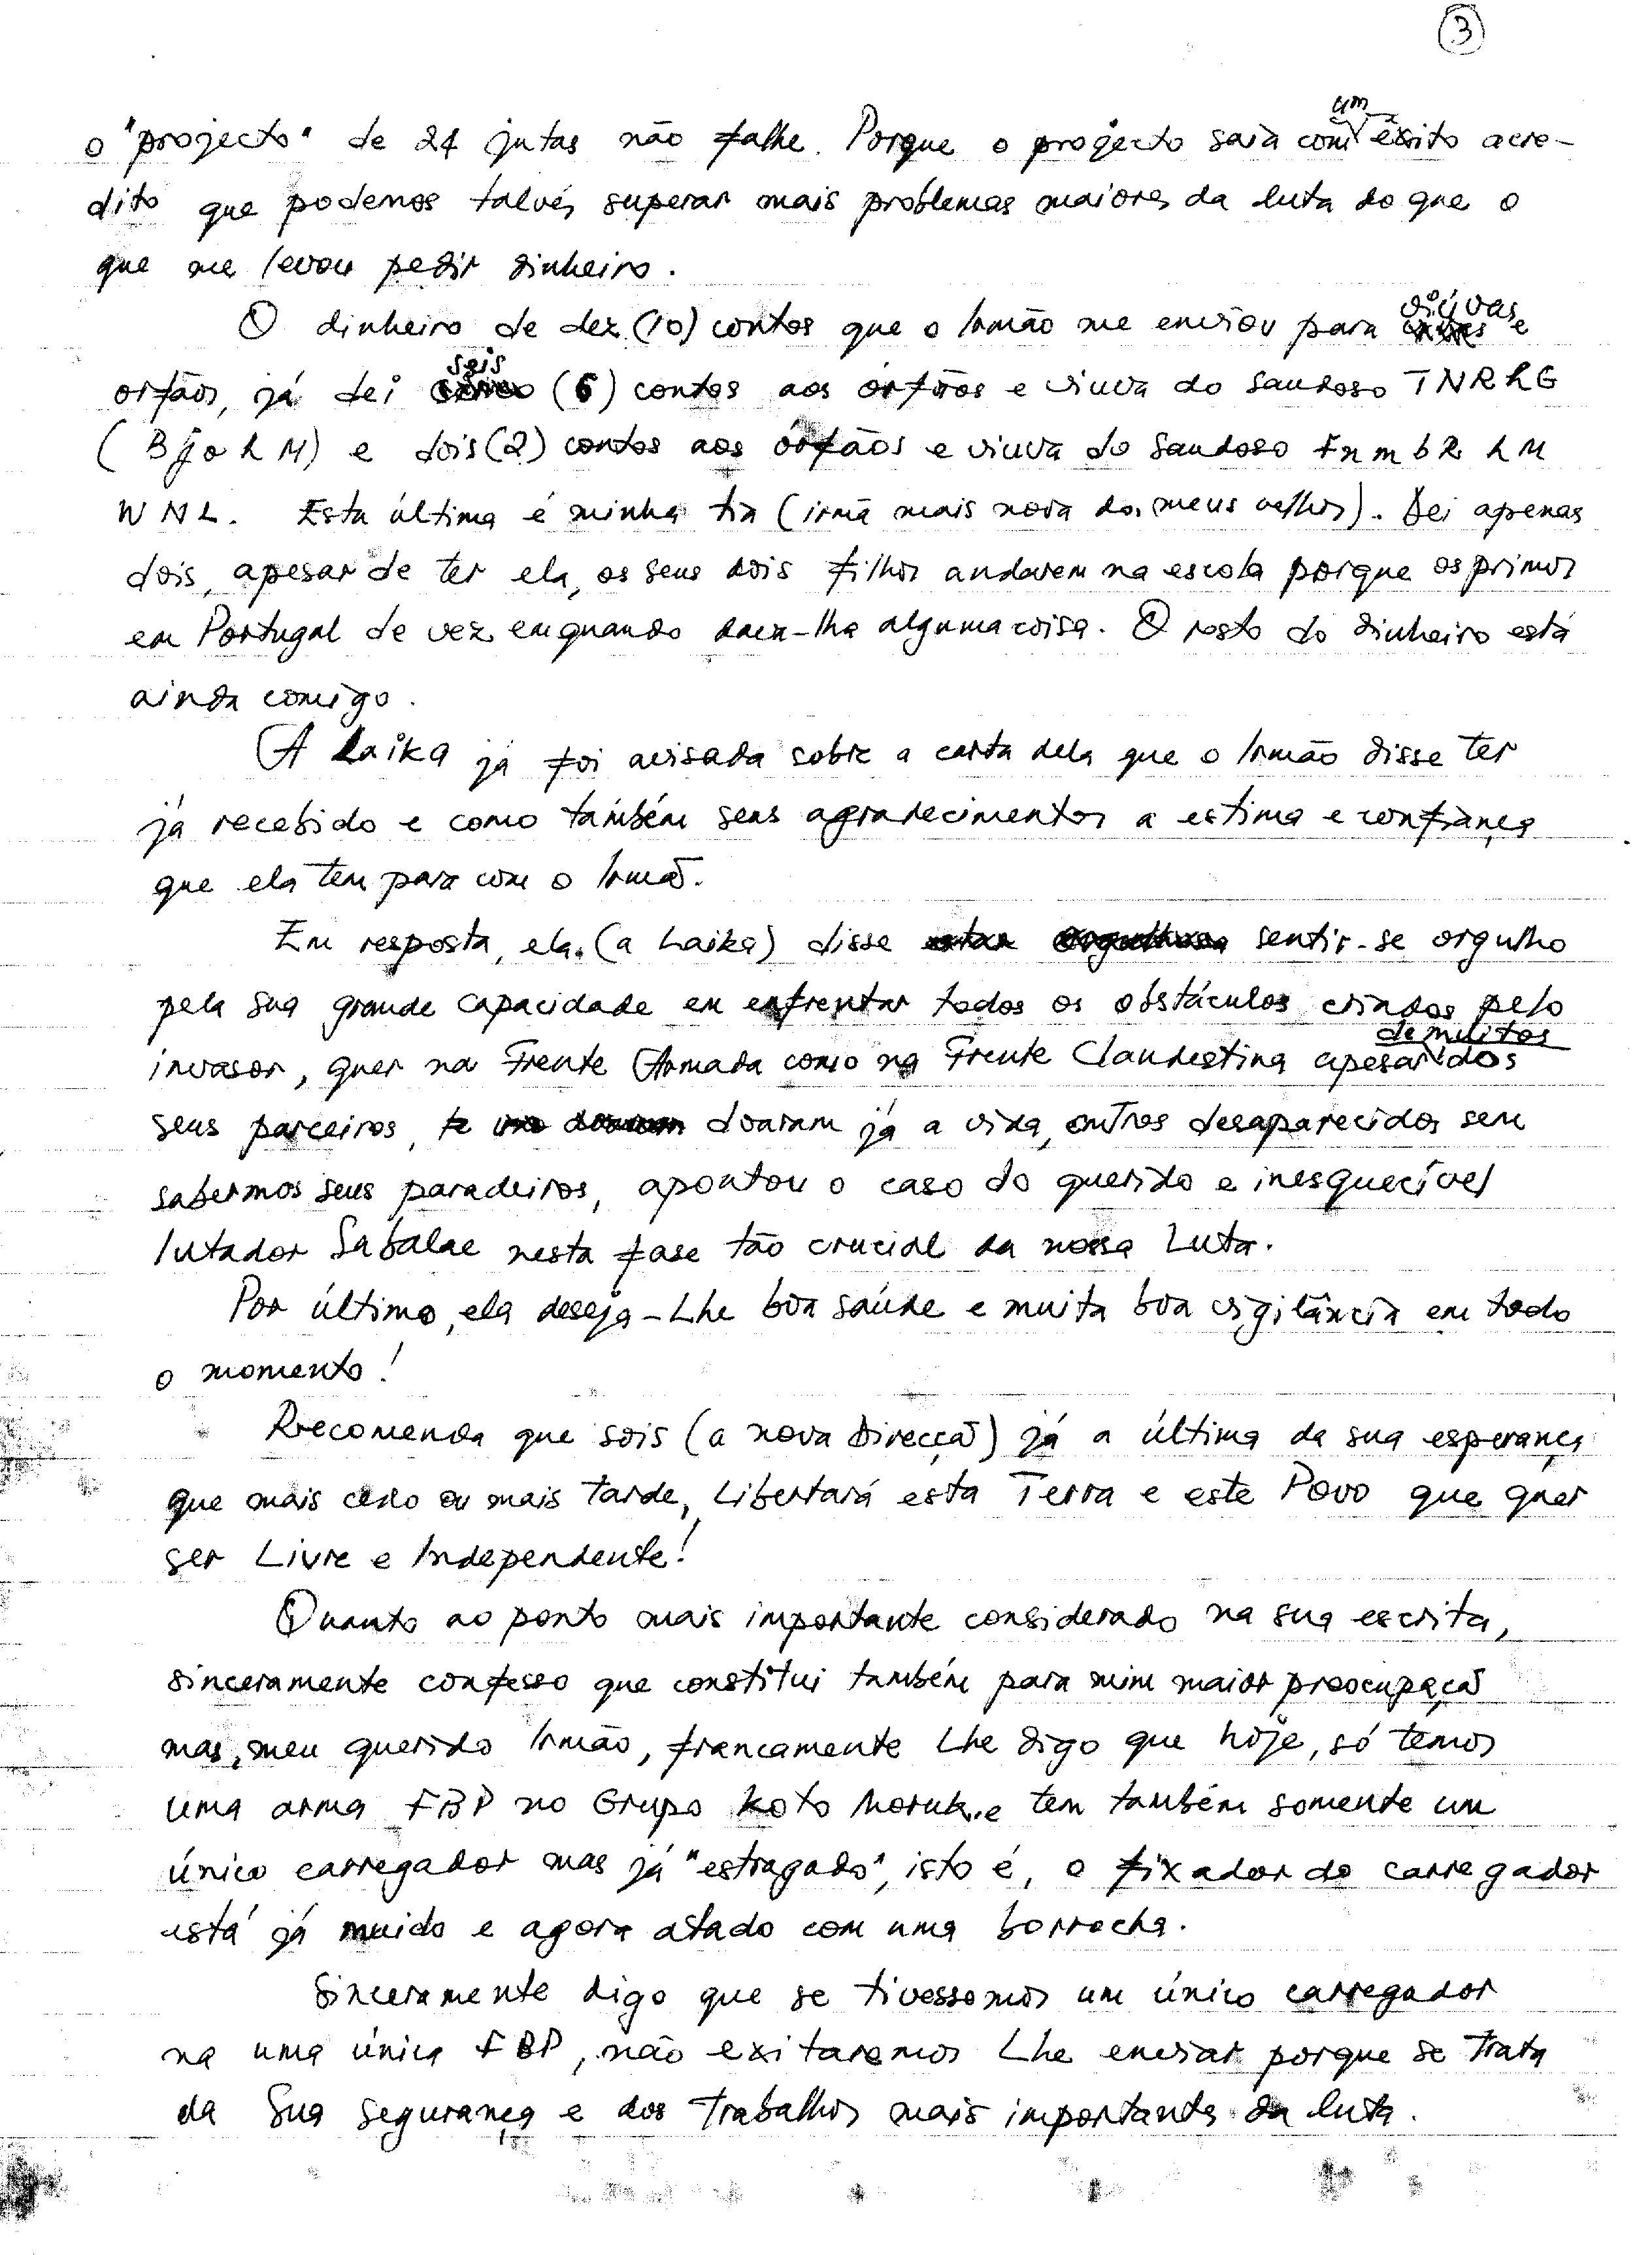 3
o "projecto" de 24 jutas não falhe. Porque o projecto saia com um êxito acre-
dito que podemos talvés superar mais problemas maiores da luta do que o
que me levou pedir dinheiro.
O dinheiro de dez (10) contos que o Irmão me enviou para viúvas e
orfãos, já dei seis (6) contos aos órfãos e viuva do saudoso TNRLG
(BjoLM) e dois (2) contos aos órfãos e viuva do saudoso FnmbR LM
WNL. Esta última é minha tia (irmã mais nova dos meus velhos). Dei apenas
dois, apesar de ter ela, os seus dois filhos andarem na escola porque os primos
em Portugal de vez enquando dava-lha alguma coisa. O resto do dinheiro está
ainda comigo.
A Laika já foi avisada sobre a carta dela que o Irmão disse ter
já recebido e como também seus agradecimentos a estima e confiança
que ela tem para com o Irmão.
Em resposta, ela (a Laika) disse sentir-se orgulho
pela sua grande capacidade em enfrentar todos os obstáculos criados pelo
invasor, quer na Frente Armada como na Frente Clandestina apesar de muitos dos
seus parceiros, doaram já a vida, outros desaparecidos sem
sabermos seus paradeiros, apontou o caso do querido e inesquecível
lutador Sabalae nesta fase tão crucial da nossa Luta.
Por último, ela deseja-Lhe boa saúde e muita boa vigilância em todo
o momento!
Recomenda que sois (a nova Direcção) já a última da sua esperança
que mais cedo ou mais tarde, Libertará esta Terra e este Povo que quer
ser Livre e Independente!
Quanto ao ponto mais importante considerado na sua escrita,
sinceramente confesso que constitui também para mim maior preocupação
mas, meu querido Irmão, francamente Lhe digo que hoje, só temos
uma arma FBP no Grupo Koto Moruk e tem também somente um
único carregador mas já "estragado", isto é, o fixador do carregador
está já muido e agora atado com uma borracha.
Sinceramente digo que se tivessemos um único carregador
na uma única FBP, não exitaremos Lhe enviar porque se trata
da Sua segurança e dos Trabalhos mais importantes da luta.